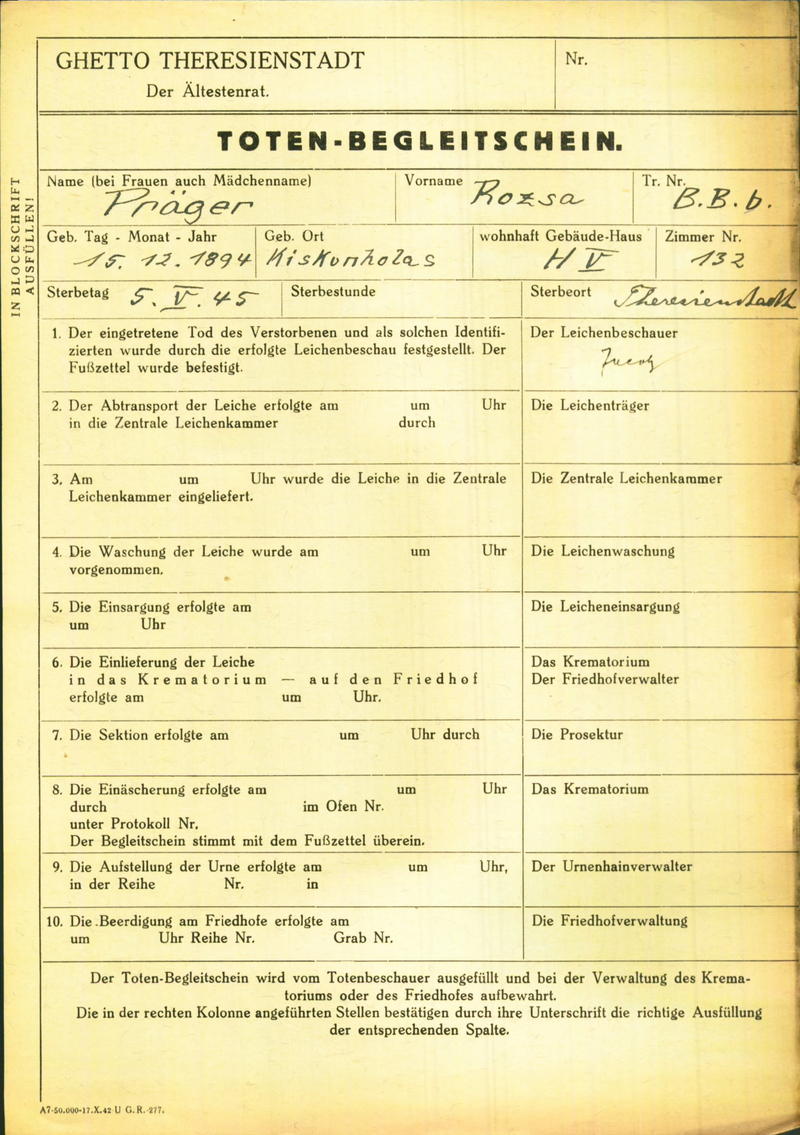 GHETTO THERESIENSTADT
Der Ältestenrat.
Nr.
TOTEN-BEGLEITSCHEIN.
IN BLOCKSCHRIFT
AUSFÜLLEN!
Name (bei Frauen auch Mädchenname)
Präger
Vorname
Rozsa
Tr. Nr.
B.B.b.
Geb. Tag - Monat - Jahr
15. 12. 1894
Geb. Ort
Kiskunholas
wohnhaft Gebäude-Haus
H V
Zimmer Nr.
132
Sterbetag 5. V. 45
Sterbestunde
Sterbeort Theresienstadt
1. Der eingetretene Tod des Verstorbenen und als solchen Identifi-
zierten wurde durch die erfolgte Leichenbeschau festgestellt. Der
Fußzettel wurde befestigt.
Der Leichenbeschauer
2. Der Abtransport der Leiche erfolgte am um Uhr
in die Zentrale Leichenkammer durch
Die Leichenträger
3. Am um Uhr wurde die Leiche in die Zentrale
Leichenkammer eingeliefert.
Die Zentrale Leichenkammer
4. Die Waschung der Leiche wurde am um Uhr
vorgenommen.
Die Leichenwaschung
5. Die Einsargung erfolgte am
um Uhr
Die Leicheneinsargung
6. Die Einlieferung der Leiche
in das Krematorium — auf den Friedhof
erfolgte am um Uhr.
Das Krematorium
Der Friedhofverwalter
7. Die Sektion erfolgte am um Uhr durch
Die Prosektur
8. Die Einäscherung erfolgte am um Uhr
durch im Ofen Nr.
unter Protokoll Nr.
Der Begleitschein stimmt mit dem Fußzettel überein.
Das Krematorium
9. Die Aufstellung der Urne erfolgte am um Uhr,
in der Reihe Nr. in
Der Urnenhainverwalter
10. Die Beerdigung am Friedhofe erfolgte am
um Uhr Reihe Nr. Grab Nr.
Die Friedhofverwaltung
Der Toten-Begleitschein wird vom Totenbeschauer ausgefüllt und bei der Verwaltung des Krema-
toriums oder des Friedhofes aufbewahrt.
Die in der rechten Kolonne angeführten Stellen bestätigen durch ihre Unterschrift die richtige Ausfüllung
der entsprechenden Spalte.
A7-50.000-17.X.42 U G.R.-277.